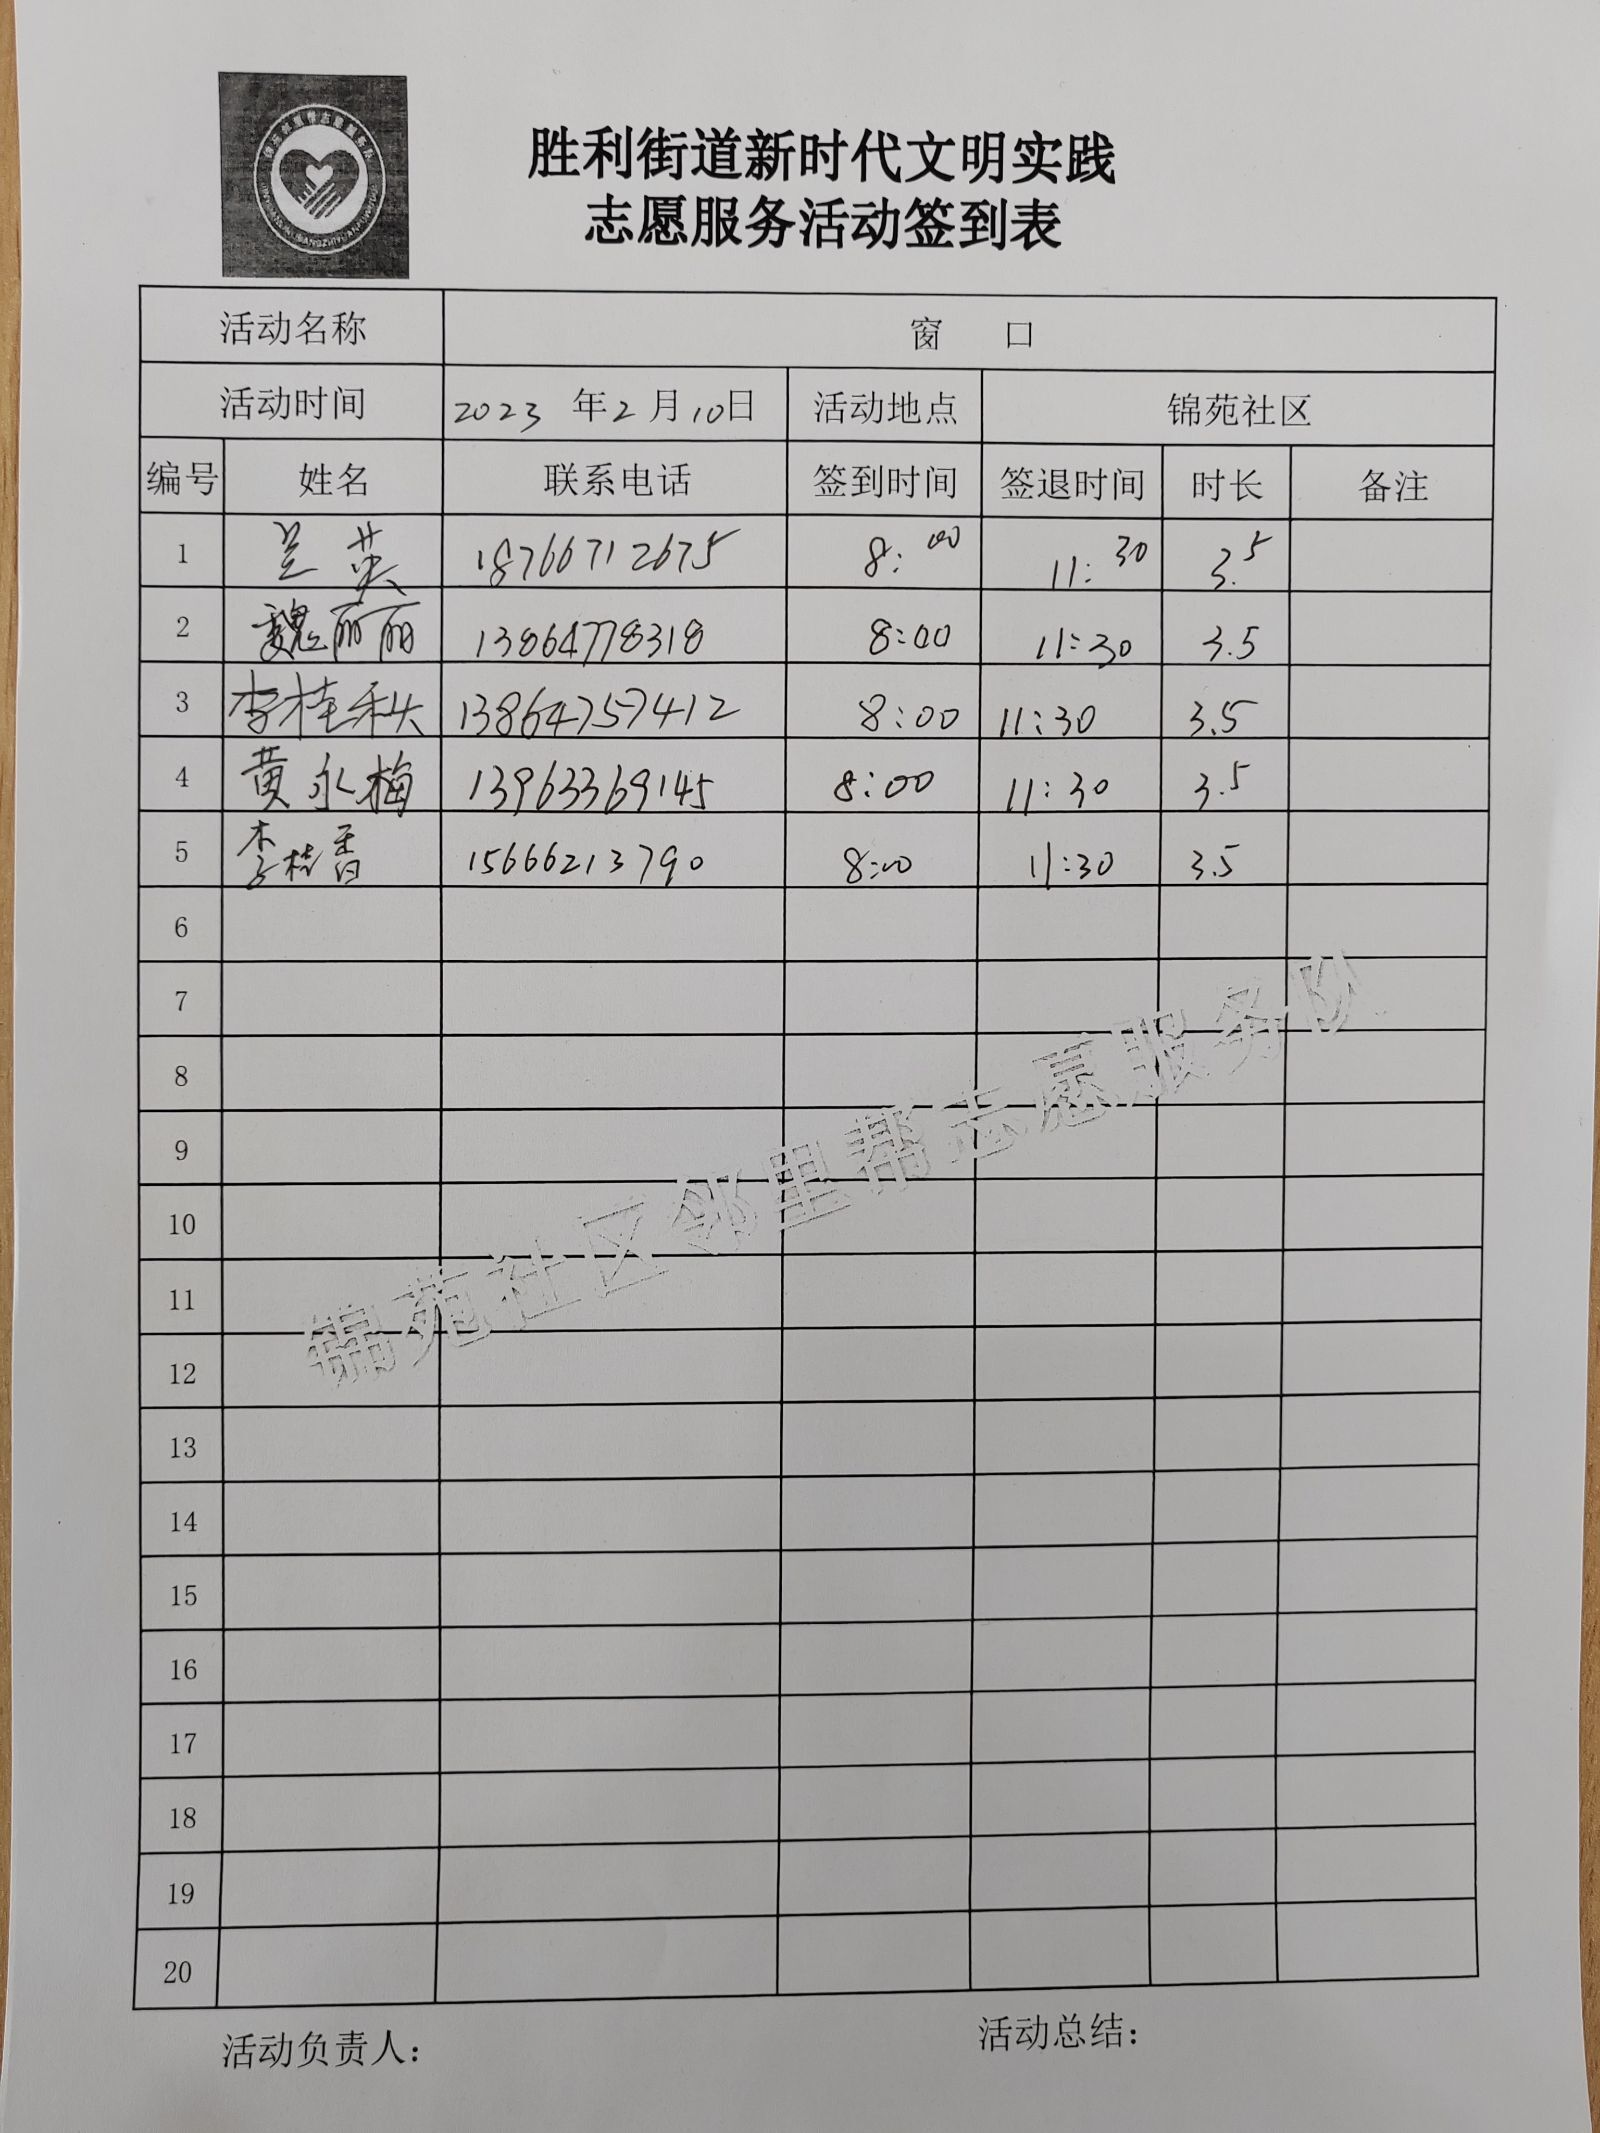 胜利街道新时代文明实践
志愿服务活动签到表
活动名称 窗 口
活动时间 2023 年 2 月 10 日 活动地点 锦苑社区
编号 姓名 联系电话 签到时间 签退时间 时长 备注
1 兰英 18766712675 8:00 11:30 3.5
2 魏丽丽 13864778318 8:00 11:30 3.5
3 李桂秋 13864757412 8:00 11:30 3.5
4 黄永梅 13963369145 8:00 11:30 3.5
5 李桂香 15666213790 8:00 11:30 3.5
6
7
8
9
10
11
12
13
14
15
16
17
18
19
20
锦苑社区邻里帮志愿服务队
活动负责人： 活动总结：